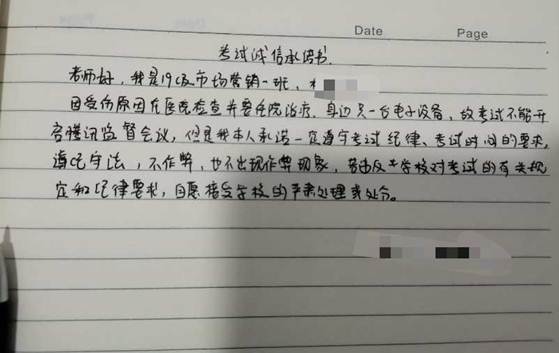 Date Page
考试诚信承诺书
老师好，我是19级市场营销一班、
因受伤原因在医院检查并要住院治疗，身边只一台电子设备，故考试不能开
启腾讯监督会议，但是我本人承诺一定遵守考试纪律、考试时间的要求，
遵纪守法，不作弊，也不出现作弊现象，若违反学校对考试的有关规
定和纪律要求，自愿接受学校的严肃处理或处分。